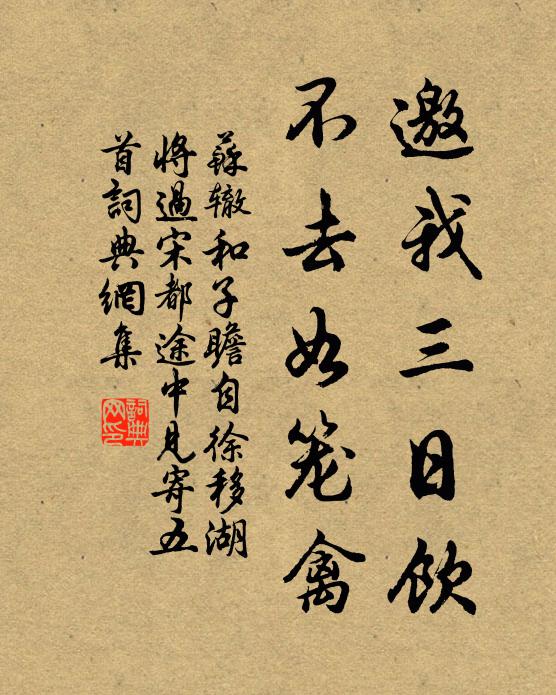 邀我三日飲
不去如笼禽
蘇辙和子瞻自徐移湖
將過宋都途中見寄五
首詞典網集
詞典
网印